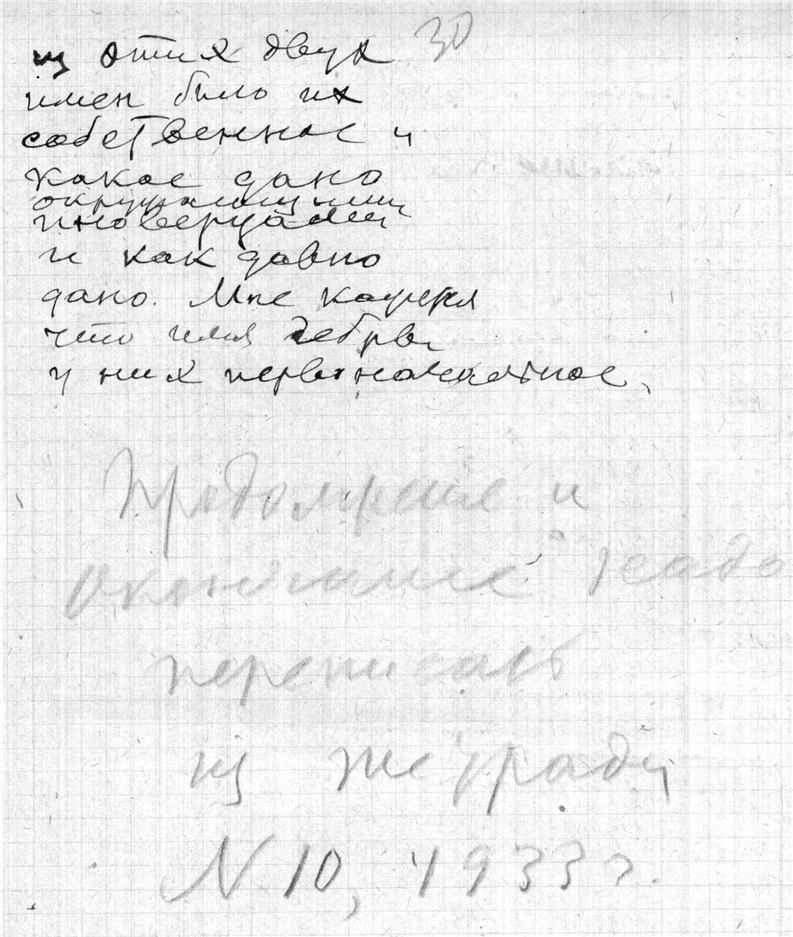 30
из этих двух
имен было их
собственное и
какое дано
окружающими
иноверцами
и как давно
дано. Мне кажется
что имя
у них первоначальное.
Продолжение и
окончание надо
переписать
из тетради
N 10, 1933 г.